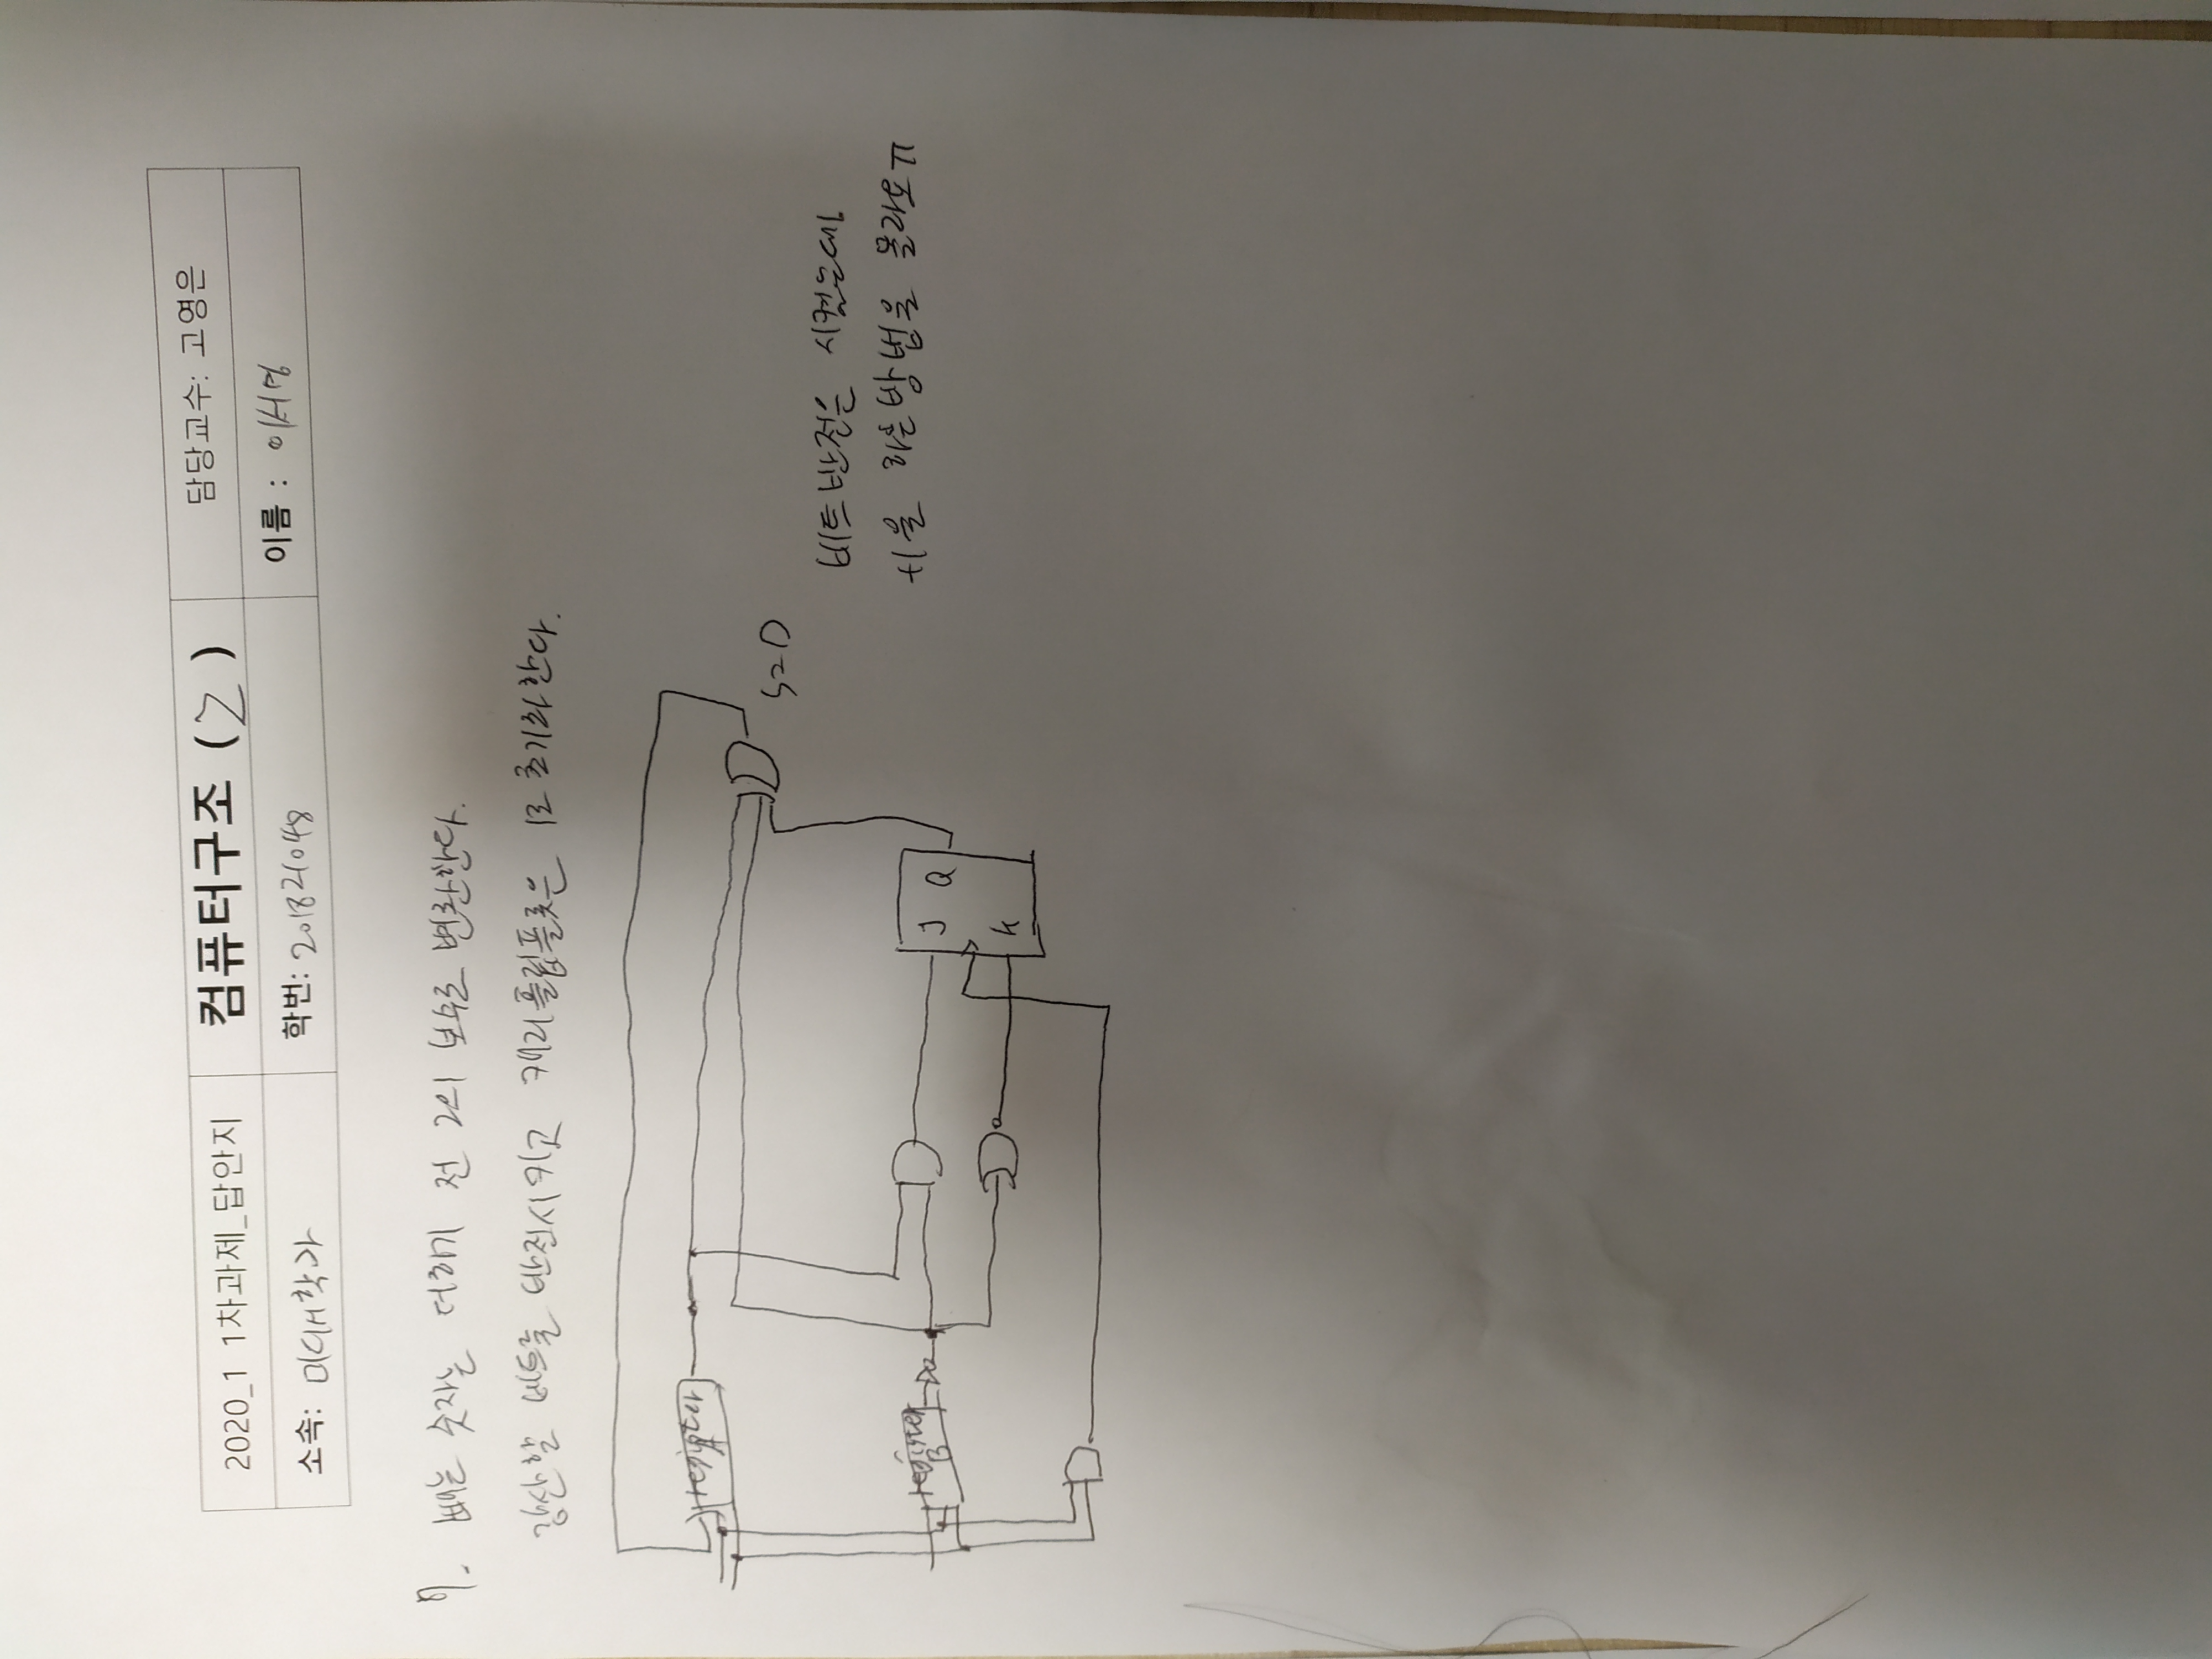 2020_1 1차과제_답안지
컴퓨터구조 (2)
담당교수: 고영은
소속: 미디어학과
학번: 201821048
이름 : 이서영
7. 빼는 숫자는 더하기 전 2의 보수로 변환한다.
감산할 비트를 반전시키고 캐리플립플롯은 1로 초기화한다.
register
A
S=D
비트반전은 시켰는데
+1을 하는방법을 몰라요ㅠ
register
B
J Q
K